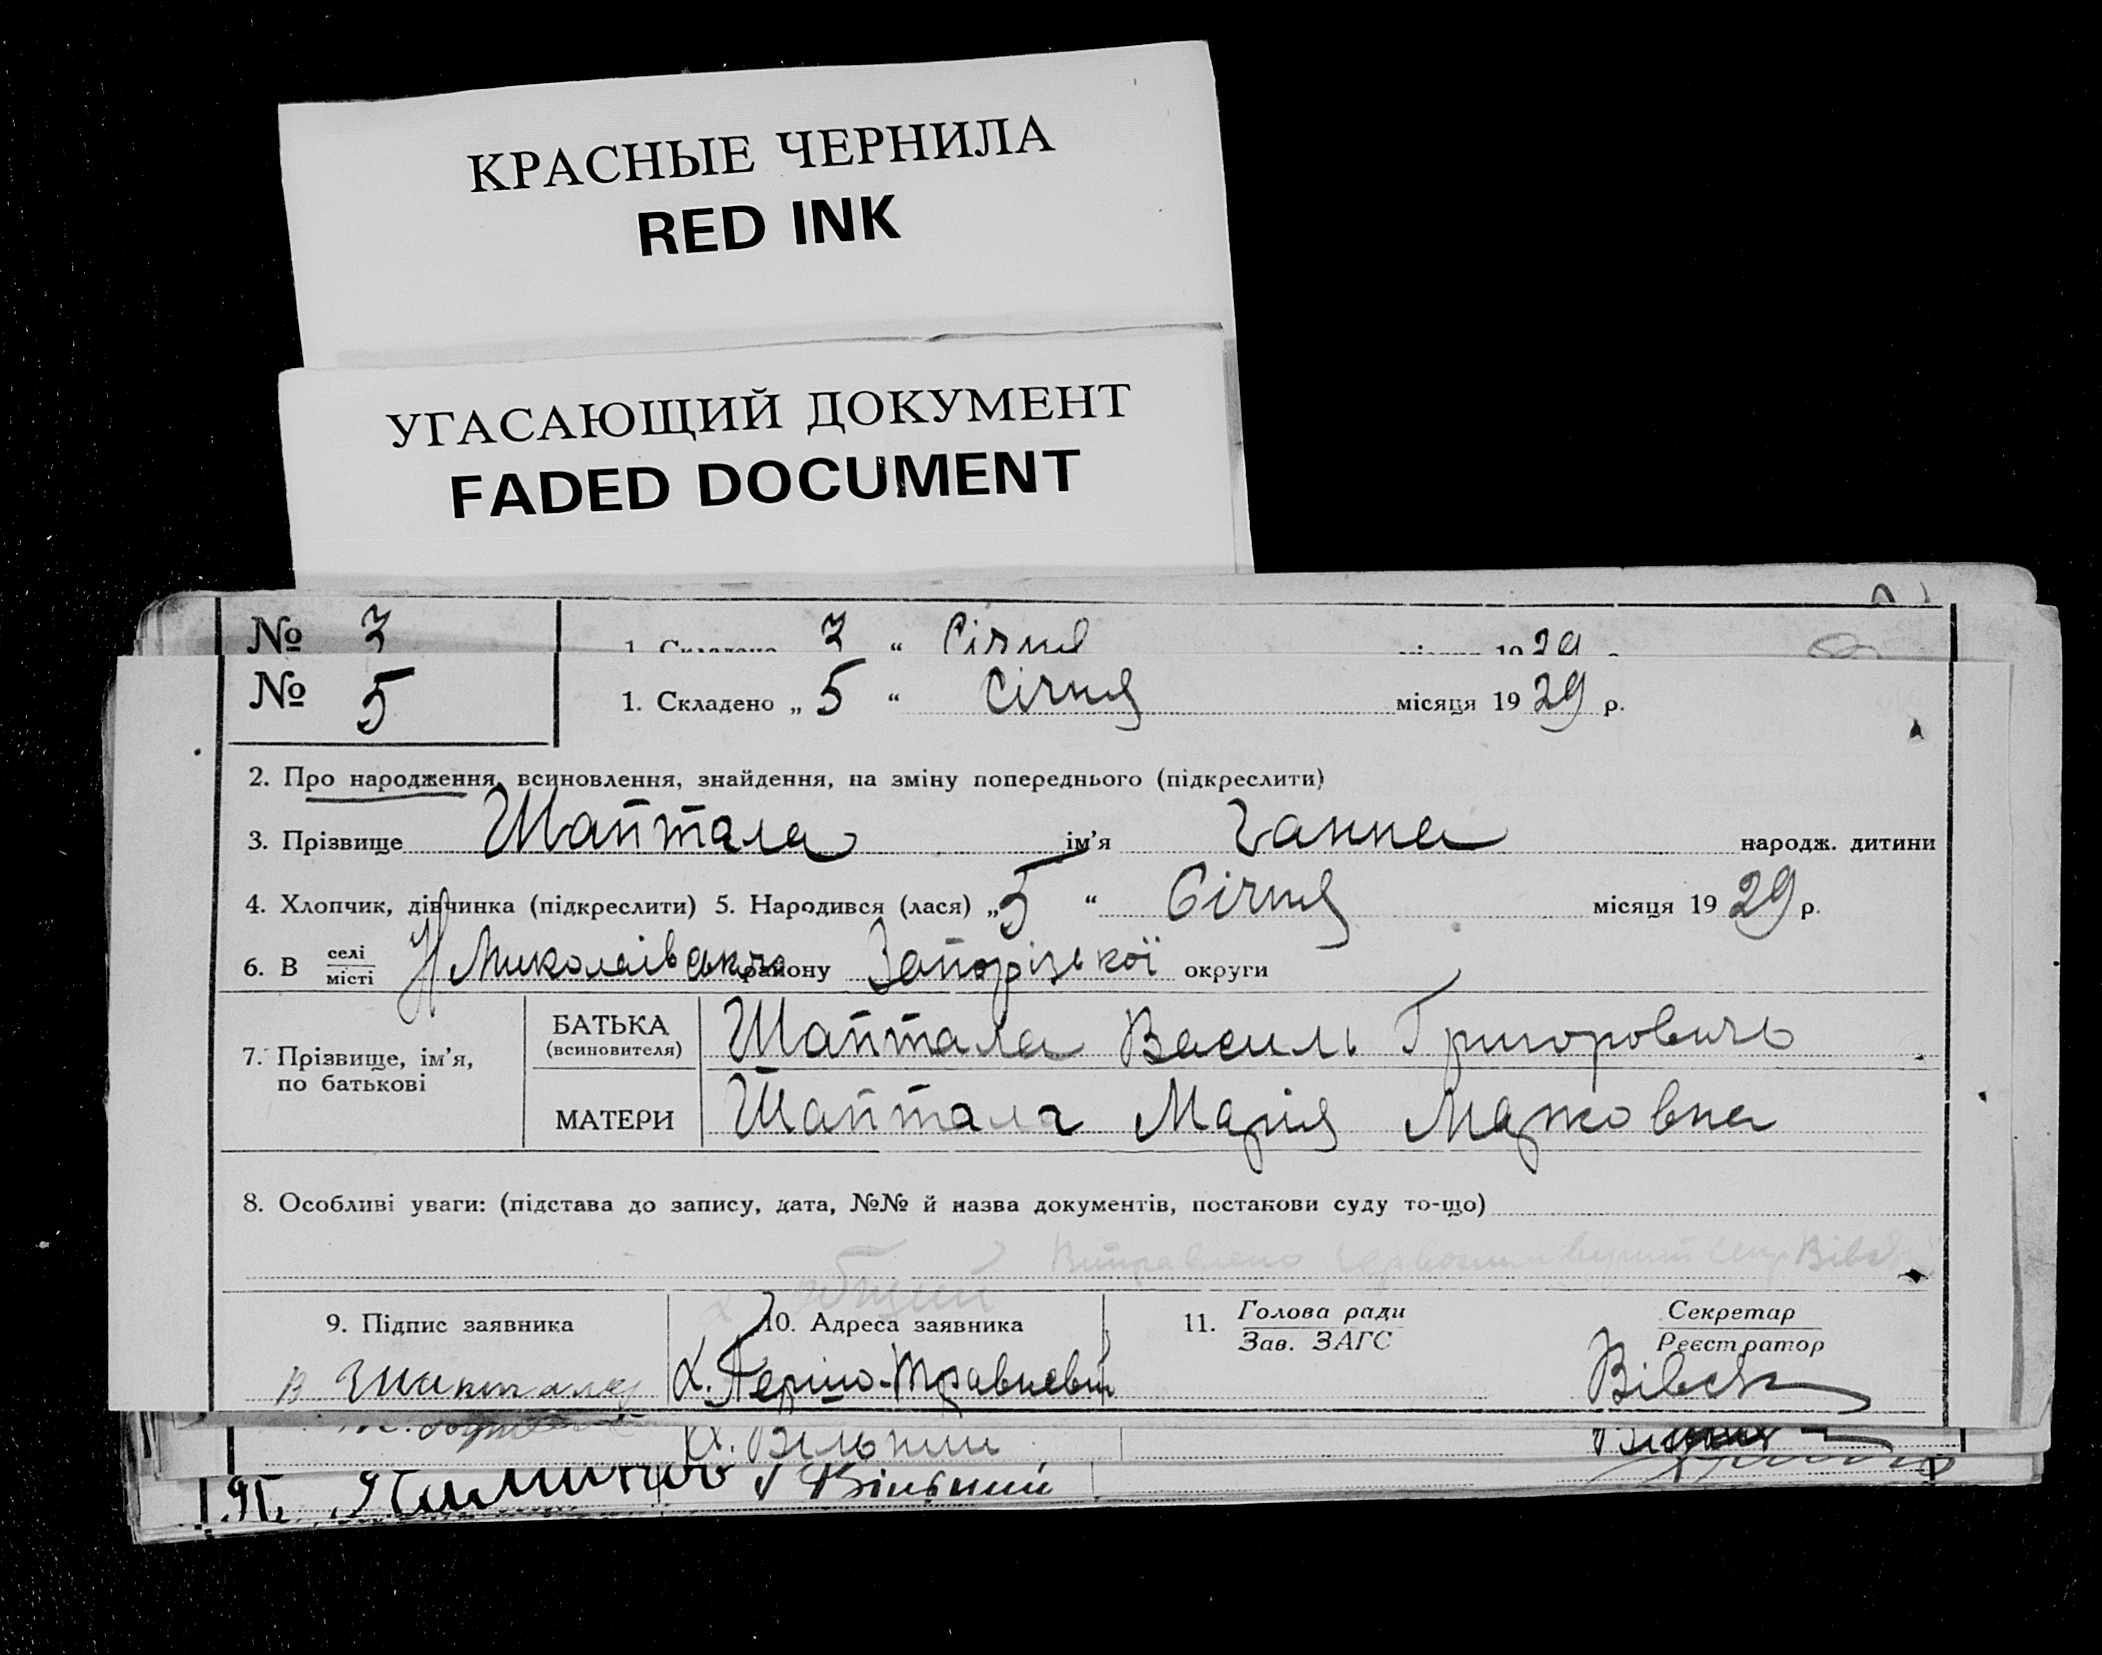 КРАСНЫЕ ЧЕРНИЛА
RED INK
УГАСАЮЩИЙ ДОКУМЕНТ
FADED DOCUMENT
№ 3 1. Складено 3 “ Січня місяця 1929
№ 5 1. Складено „ 5 “ Січня місяця 1929 р.
2. Про народження, всиновлення, знайдення, на зміну попереднього (підкреслити)
3. Прізвище Шаптала ім’я Ганна народж. дитини
4. Хлопчик, дівчинка (підкреслити) 5. Народився (лася) „5 “ Січня місяця 1929 р.
6. В селі
місті Н Миколаівська району Запорізької округи
7. Прізвище, ім’я,
по батькові
БАТЬКА
(всиновителя) Шаптала Василь Григоровичь
МАТЕРИ Шаптала Марія Марковна
8. Особливі уваги: (підстава до запису, дата, №№ й назва документів, постанови суду то-що)
Виправлено
9. Підпис заявника 10. Адреса заявника 11. Голова ради
Зав. ЗАГС Секретар
Реєстратор
В Шаптала х. Першо-Травневий
х. Вільний
Вільний